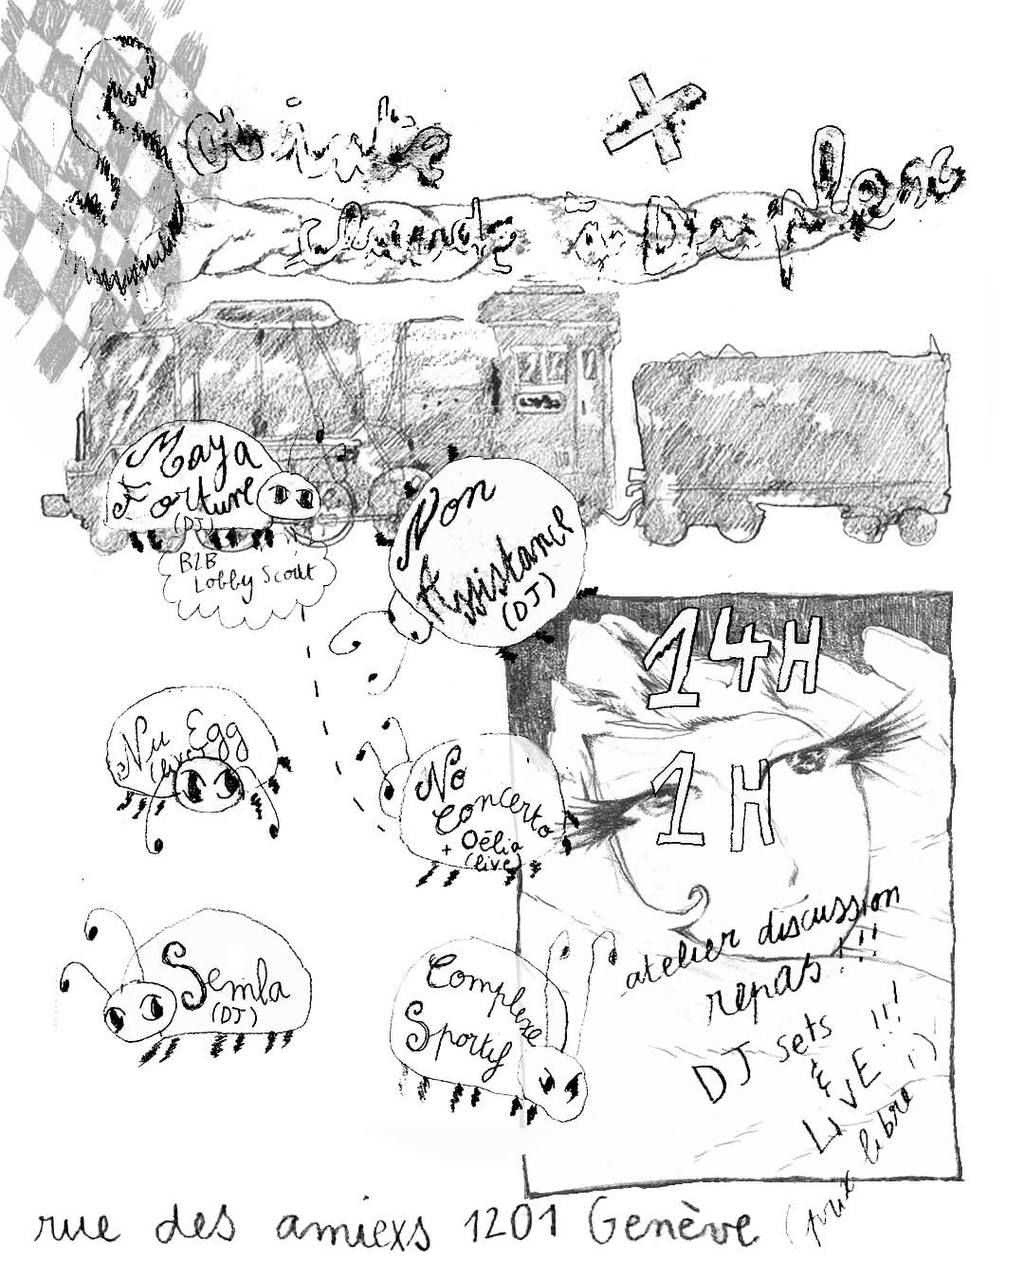 Sainte
+
chude à Dixplons
Maya
Torture
(DJ)
B2B
Lobby Scout
Non
Assistance
(DJ)
14H
1H
Nu Egg
(live)
No
Concerto
+ Oélia
(live)
Semla
(DJ)
Complexe
Sportif
atelier discussion
repas !!!
DJ sets
&
LIVE !!!
(prix libre !)
rue des amiexs 1201 Genève